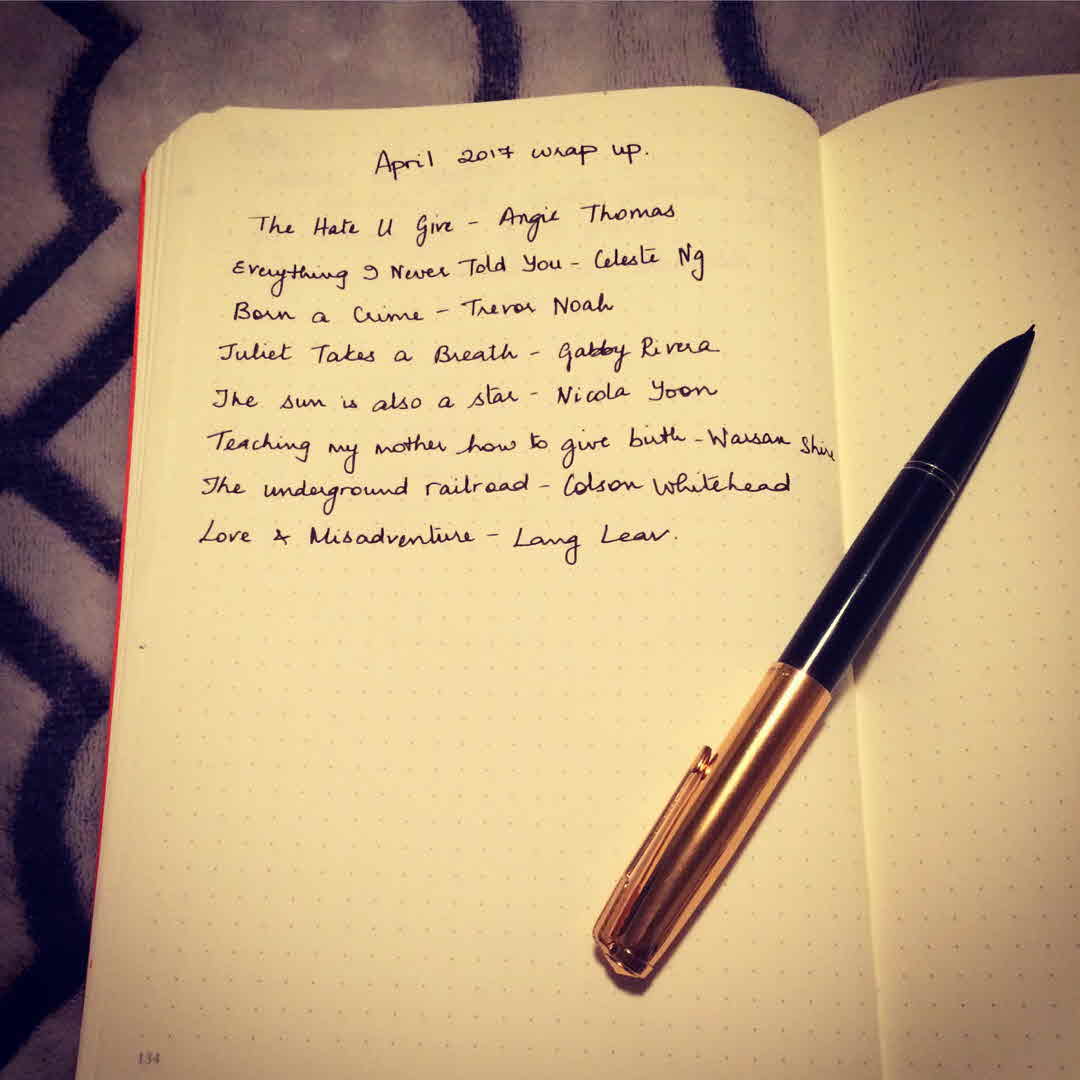 April 2017 wrap up.
The Hate U Give - Angie Thomas
Everything I Never Told You - Celeste Ng
Born a Crime - Trevor Noah
Juliet Takes a Breath - Gabby Rivera
The sun is also a star - Nicola Yoon
Teaching my mother how to give birth - Warsan Shire
The underground railroad - Colson Whitehead
Love & Misadventure - Lang Leav.
134